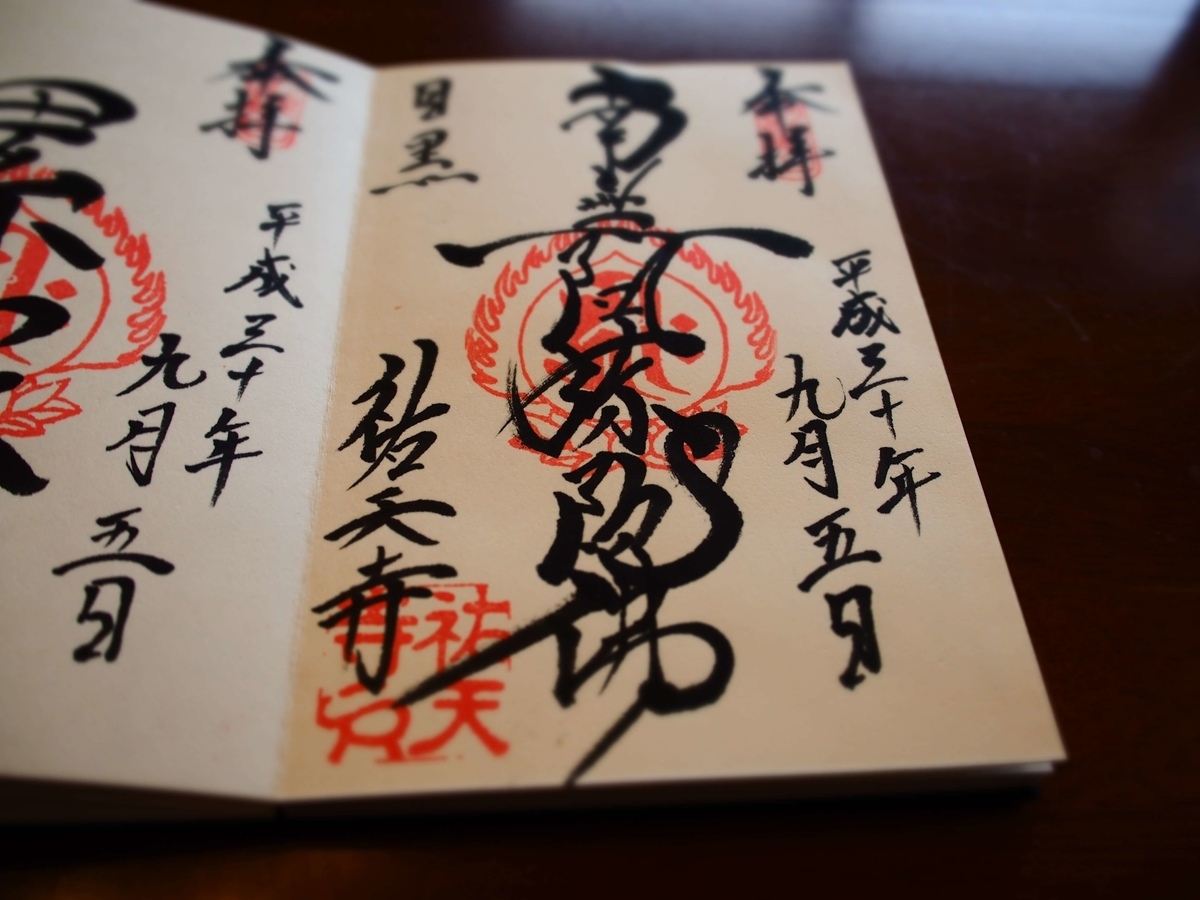 奉拝
平成三十年
九月五日
南無阿弥陀佛
目黒
祐天寺
祐天
寺印
奉拝
平成三十年
九月五日